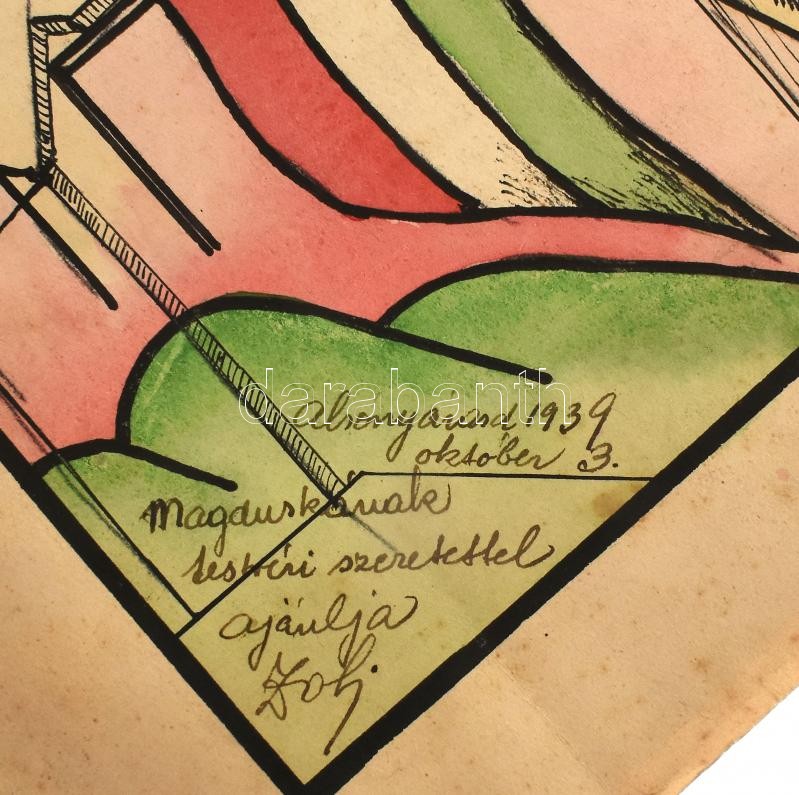 darabanth
Alsónyárasd 1939
október 3.
Magduskának
testvéri szeretettel
ajánlja
Zoli